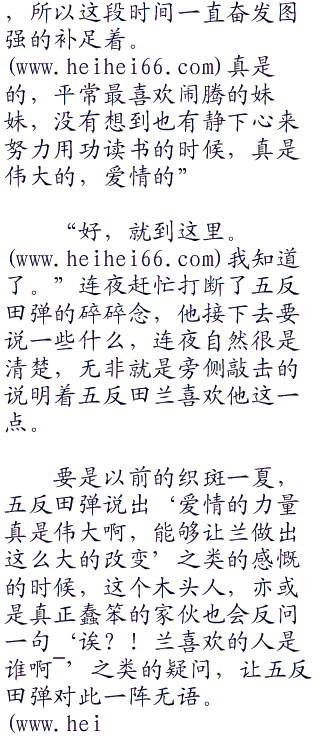 ，所以这段时间一直奋发图
强的补足着。
(www.heihei66.com)真是
的，平常最喜欢闹腾的妹
妹，没有想到也有静下心来
努力用功读书的时候，真是
伟大的，爱情的”
“好，就到这里。
(www.heihei66.com)我知道
了。”连夜赶忙打断了五反
田弹的碎碎念，他接下去要
说一些什么，连夜自然很是
清楚，无非就是旁侧敲击的
说明着五反田兰喜欢他这一
点。
要是以前的织斑一夏，
五反田弹说出‘爱情的力量
真是伟大啊，能够让兰做出
这么大的改变’之类的感慨
的时候，这个木头人，亦或
是真正蠢笨的家伙也会反问
一句‘诶？！兰喜欢的人是
谁啊¯’之类的疑问，让五反
田弹对此一阵无语。
(www.hei